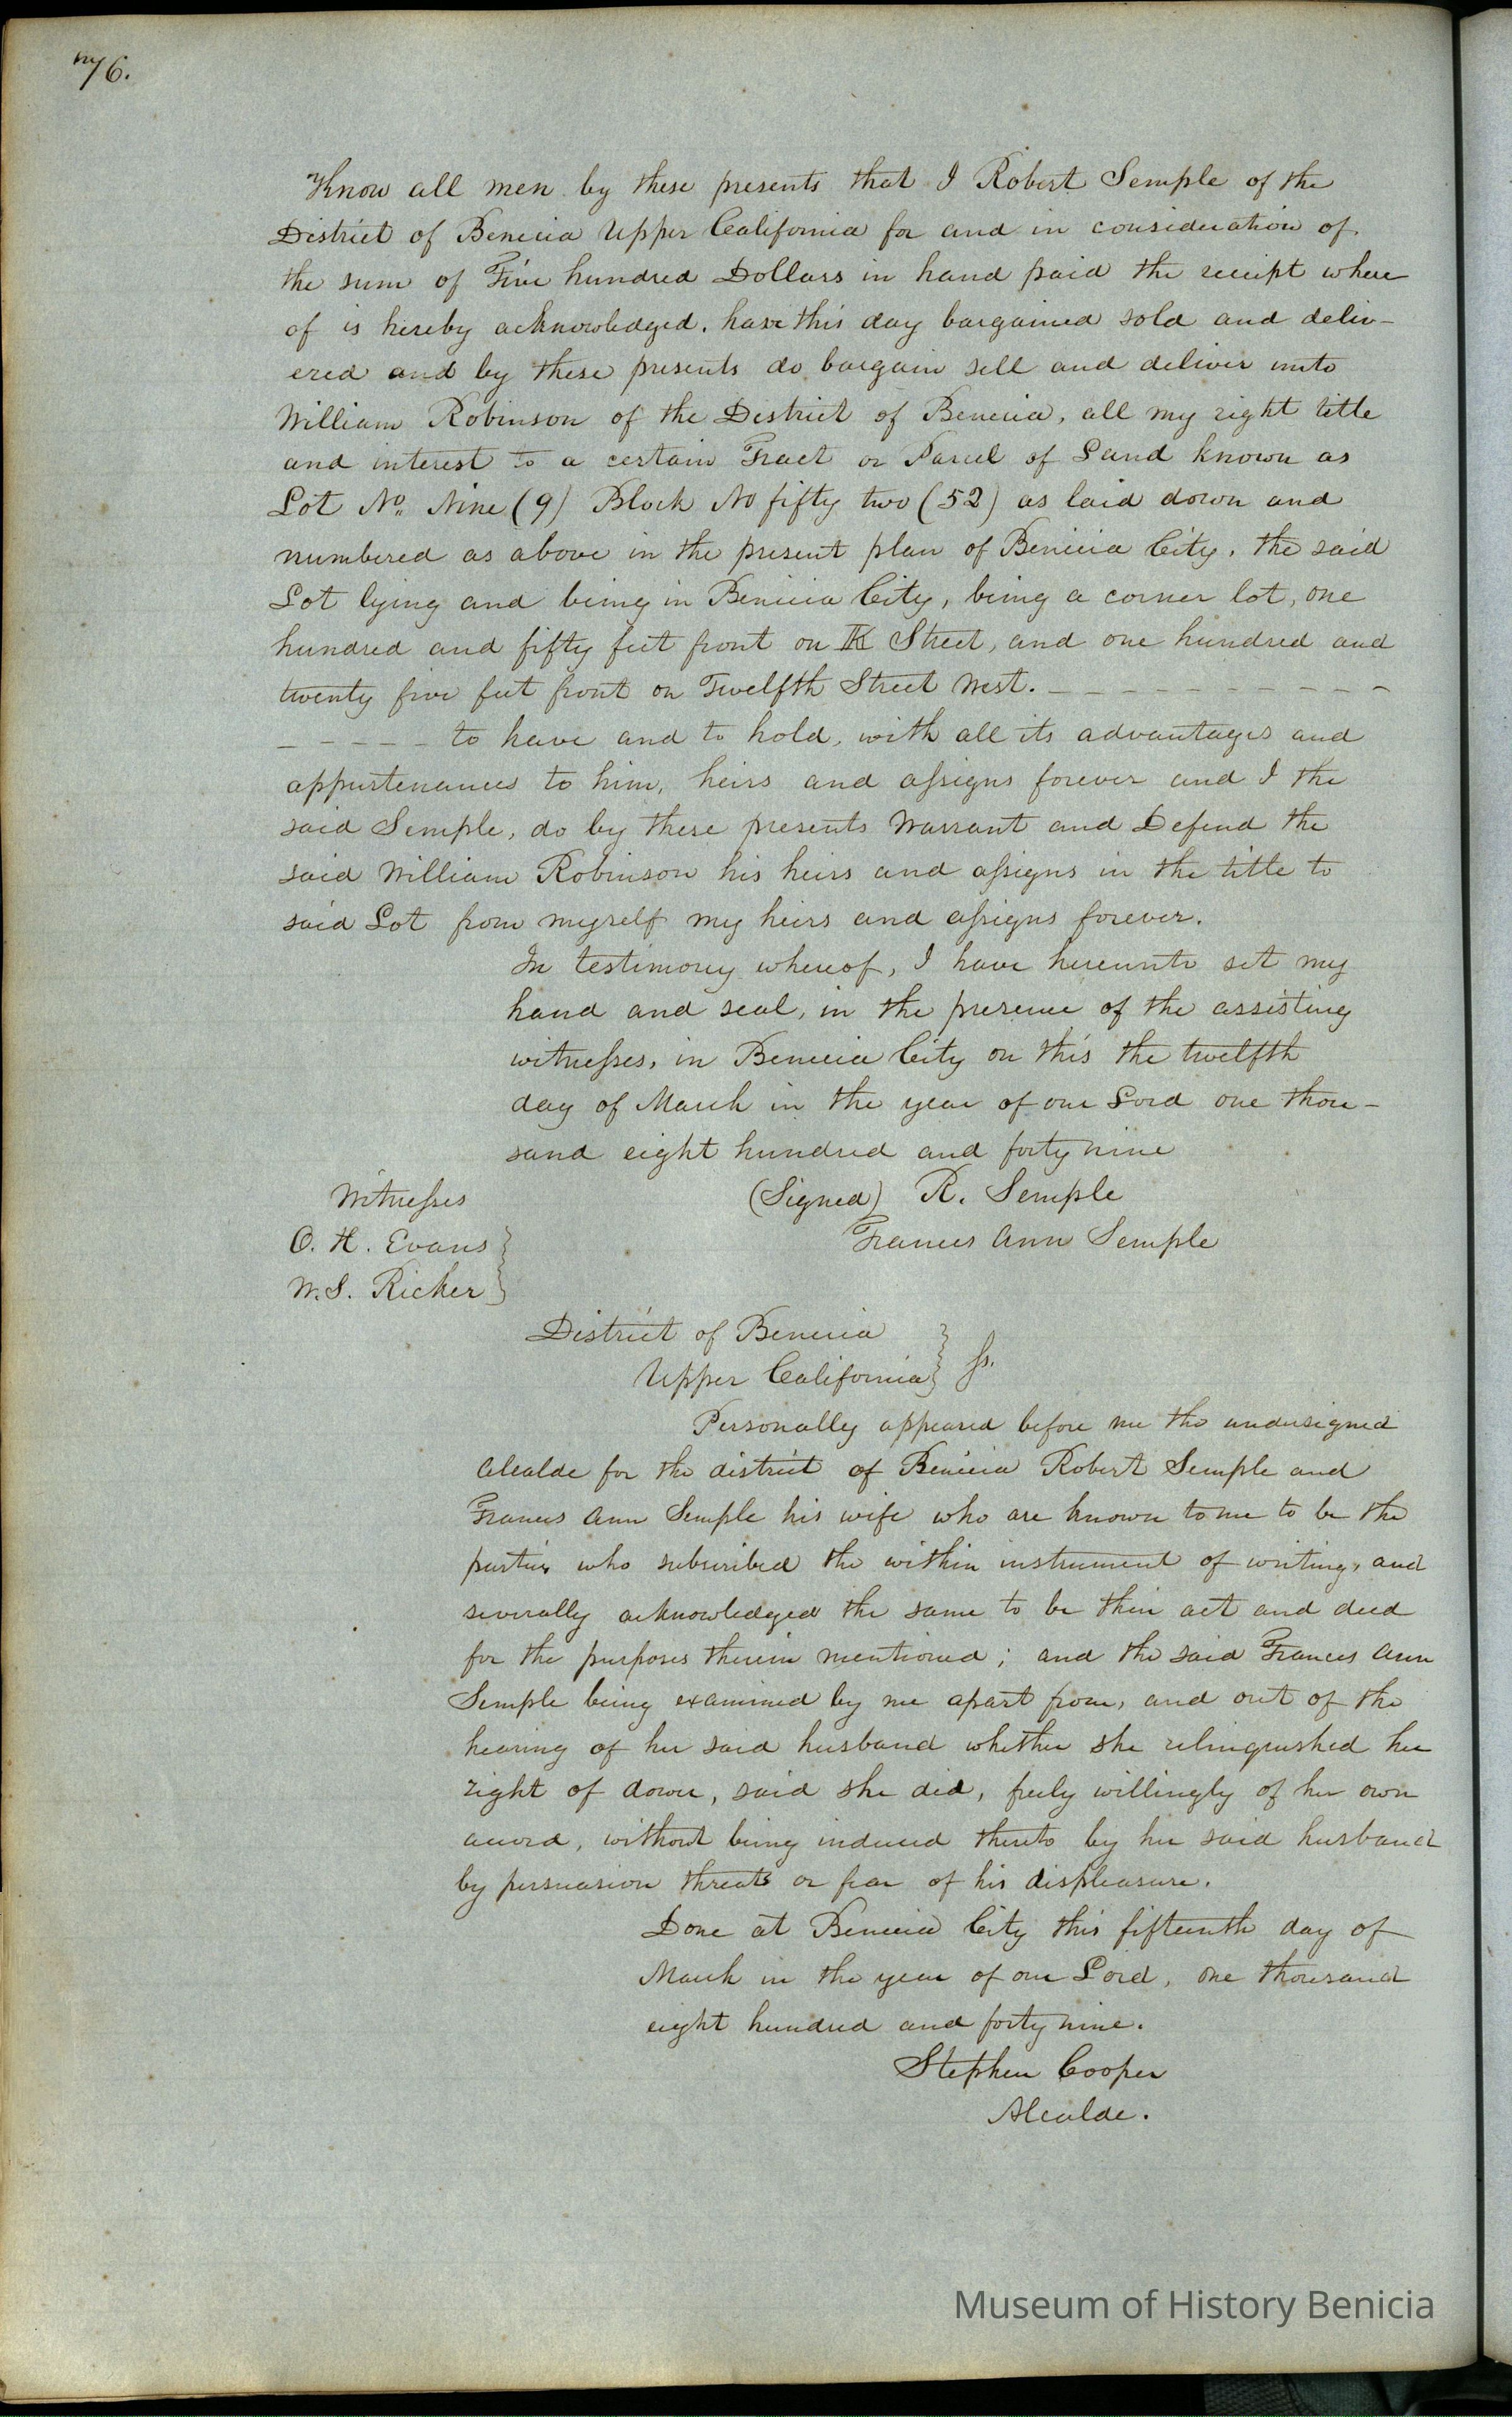 76.
Know all men by these presents that I Robert Semple of the
District of Benicia Upper California for and in consideration of
the sum of Five hundred Dollars in hand paid the receipt where
of is hereby acknowledged. have this day bargained sold and deliv-
ered and by these presents do bargain sell and deliver unto
William Robinson of the District of Benicia, all my right title
and interest to a certain Tract or Parcel of Land known as
Lot No. Nine (9) Block No fifty two (52) as laid down and
numbered as above in the present plan of Benicia City, the said
Lot lying and being in Benicia City, being a corner lot, one
hundred and fifty feet front on K Street, and one hundred and
twenty five feet front on Twelfth Street West. - - - - - - - - - -
- - - - - to have and to hold, with all its advantages and
appurtenances to him, heirs and assigns forever and I the
said Semple, do by these presents Warrant and Defend the
said William Robinson his heirs and assigns in the title to
said Lot from myself my heirs and assigns forever.
In testimony whereof, I have hereunto set my
hand and seal, in the presence of the assisting
witnesses, in Benicia City on this the twelfth
day of March in the year of our Lord one thou-
sand eight hundred and forty nine
Witnesses (Signed) R. Semple
O. H. Evans Frances Ann Semple
W. S. Ricker
District of Benicia
Upper California } ss.
Personally appeared before me the undersigned
Alcalde for the district of Benicia Robert Semple and
Frances Ann Semple his wife who are known to me to be the
parties who subscribed the within instrument of writing, and
severally acknowledged the same to be their act and deed
for the purposes therein mentioned; and the said Frances Ann
Semple being examined by me apart from, and out of the
hearing of her said husband whether she relinquished her
right of dower, said she did, freely willingly of her own
accord, without being induced thereto by her said husband
by persuasion threats or fear of his displeasure.
Done at Benicia City this fifteenth day of
March in the year of our Lord, one thousand
eight hundred and forty nine.
Stephen Cooper
Alcalde.
Museum of History Benicia